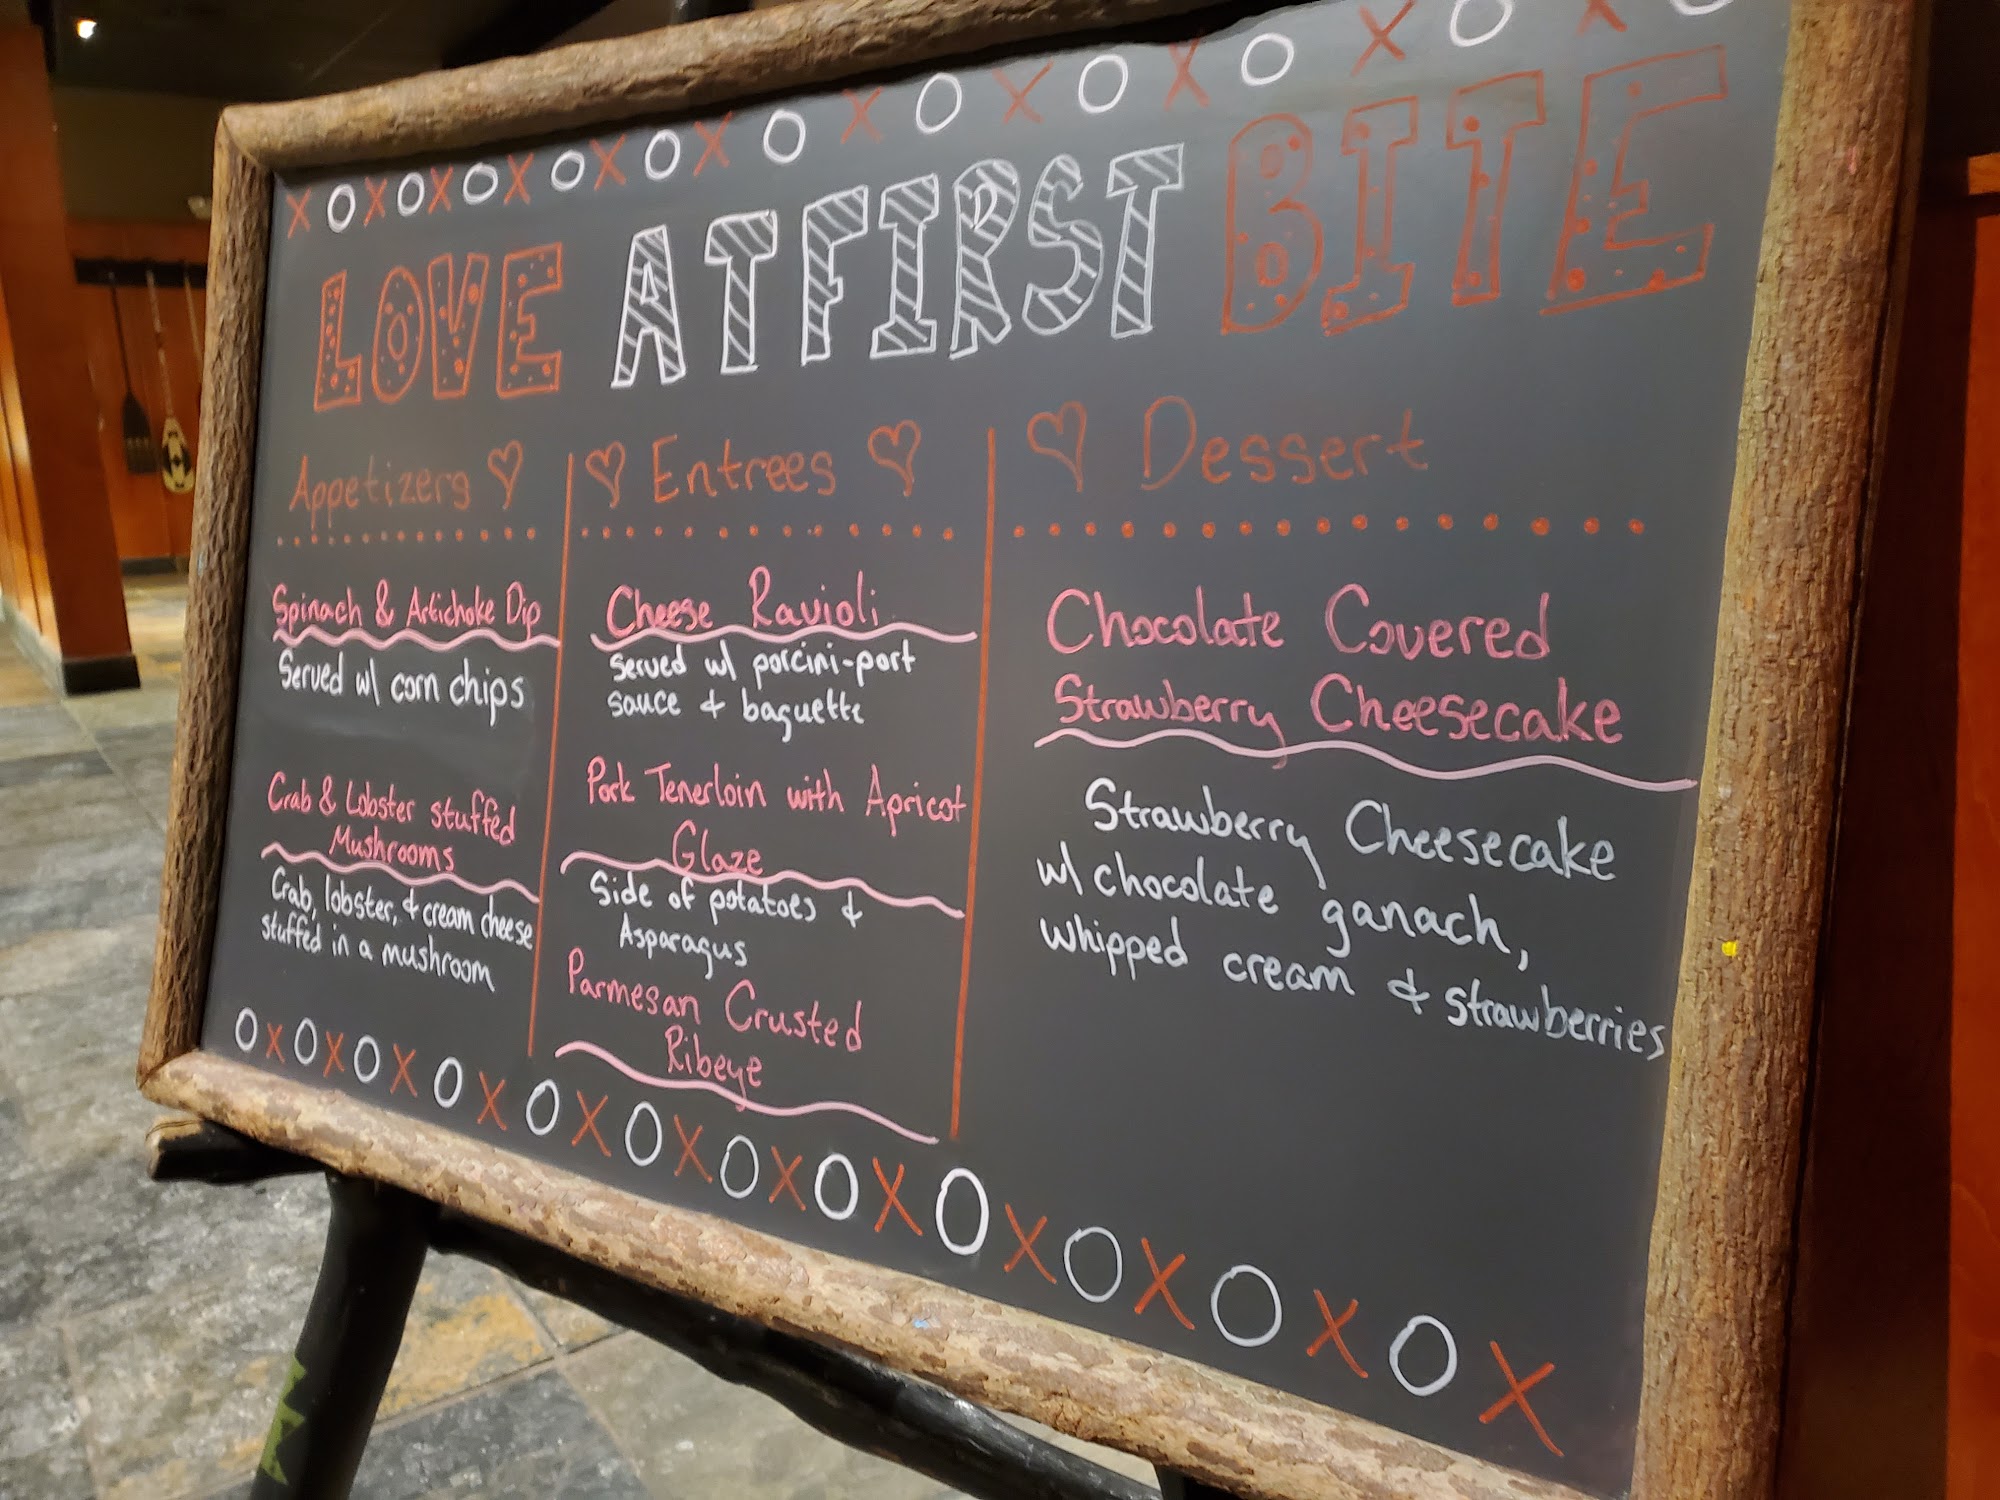 X O X O X O X O X O X O X O X O X O X O X O
LOVE AT FIRST BITE
Appetizers
Spinach & Artichoke Dip
Served w/ corn chips
Crab & Lobster stuffed
Mushrooms
Crab, lobster, & cream cheese
stuffed in a mushroom
Entrees
Cheese Ravioli
served w/ porcini-port
sauce & baguette
Pork Tenerloin with Apricot
Glaze
Side of potatoes &
Asparagus
Parmesan Crusted
Ribeye
Dessert
Chocolate Covered
Strawberry Cheesecake
Strawberry Cheesecake
w/ chocolate ganach,
whipped cream & strawberries
O X O X O X O X O X O X O X O X O X O X O X O X